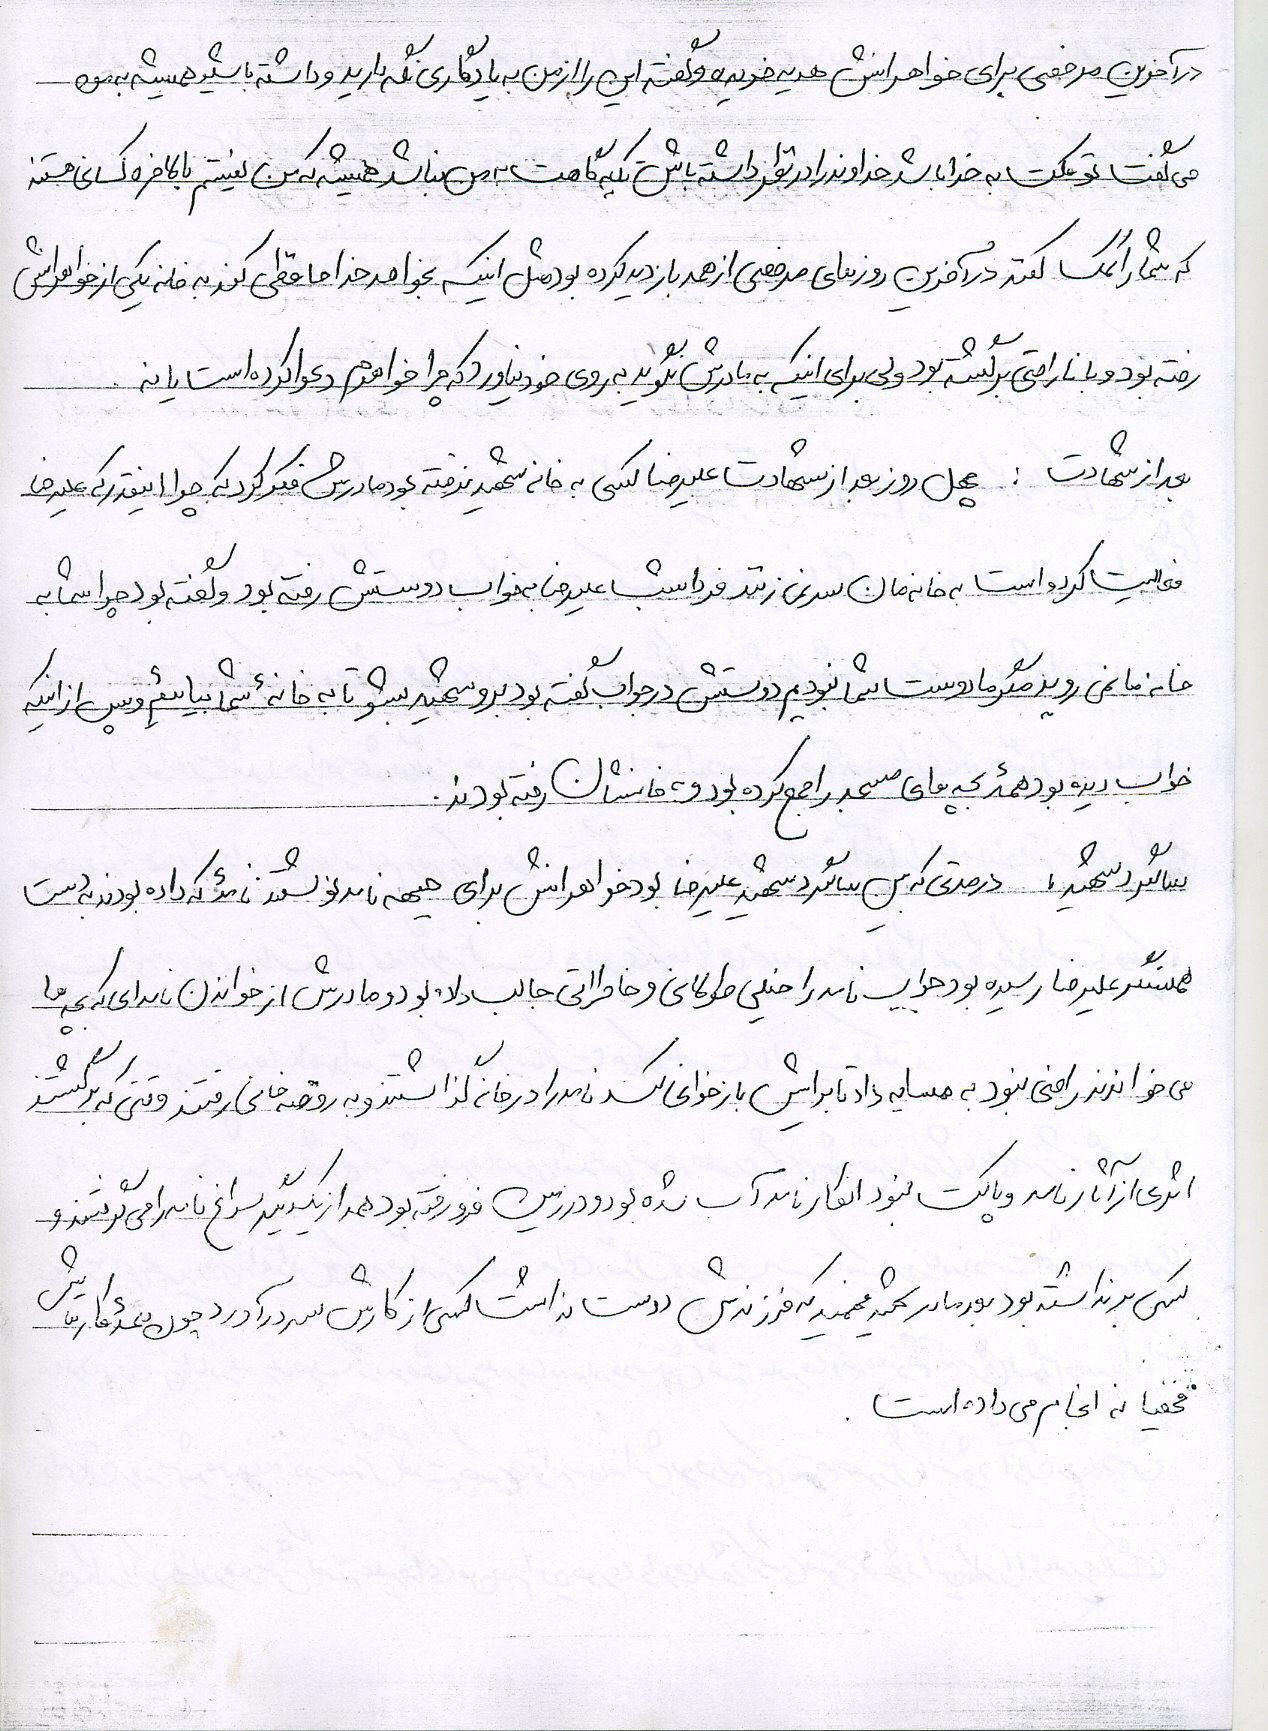 در آخرین مرخصی برای خواهرانش هدیه خریده و گفته این را از من به یادگاری نگه دارید و داشته باشید همیشه به من
می گفت توکلت به خدا باشد خداوند را در نظر داشته باش تکیه گاهت به من نباشد همیشه که من نیستم بالاخره کسانی هستند
که شما را کمک کنند در آخرین روزهای مرخصی از همه بازدید کرده بود مثل اینکه بخواهد خداحافظی کند به خانه یکی از خواهرانش
رفته بود و با ناراحتی برگشته بود ولی برای اینکه به مادرش نگوید به روی خود نیاورد که چرا خواهرم دعوا کرده است یا نه .
بعد از شهادت : چهل روز بعد از شهادت علیرضا کسی به خانه شهید نرفته بود مادرش فکر کرد که چرا اینقدر که علیرضا
فعالیت کرده است به خانه مان سر نمی زنند فردا شب علیرضا به خواب دوستش رفته بود و گفته بود چرا شما به
خانه ما نمی روید مگر ما دوست شما نبودیم دوستش در جواب گفته بود برو شهید بشو تا به خانهٔ شما بیائیم و پس از اینکه
خواب دیده بود همهٔ بچه های مسجد را جمع کرده بود و به خانشان رفته بودند .
سالگرد شهید : در مدتی که سالگرد شهید علیرضا بود خواهرانش برای جبهه نامه نوشتند نامهٔ که داده بودند به دست
همسنگر علیرضا رسیده بود جواب نامه را خیلی طولانی و خاطراتی جالب داده بود و مادرش از خواندن نامه ای که بچه ها
می خواندند راضی نبود به همسایه داد تا برایش بازخوانی کند نامه را در خانه گذاشتند و به روضه خانی رفتند وقتی که برگشتند
اثری از آثار نامه و پاکت نبود انگار نامه آب شده بود و در زمین فرو رفته بود همه از یکدیگر سراغ نامه را می گرفتند و
کسی برنداشته بود بعد مادر شهید فهمید که فرزندش دوست نداشت کسی از کارش سر در آورد چون همهٔ کارهایش
مخفیانه انجام می داده است .